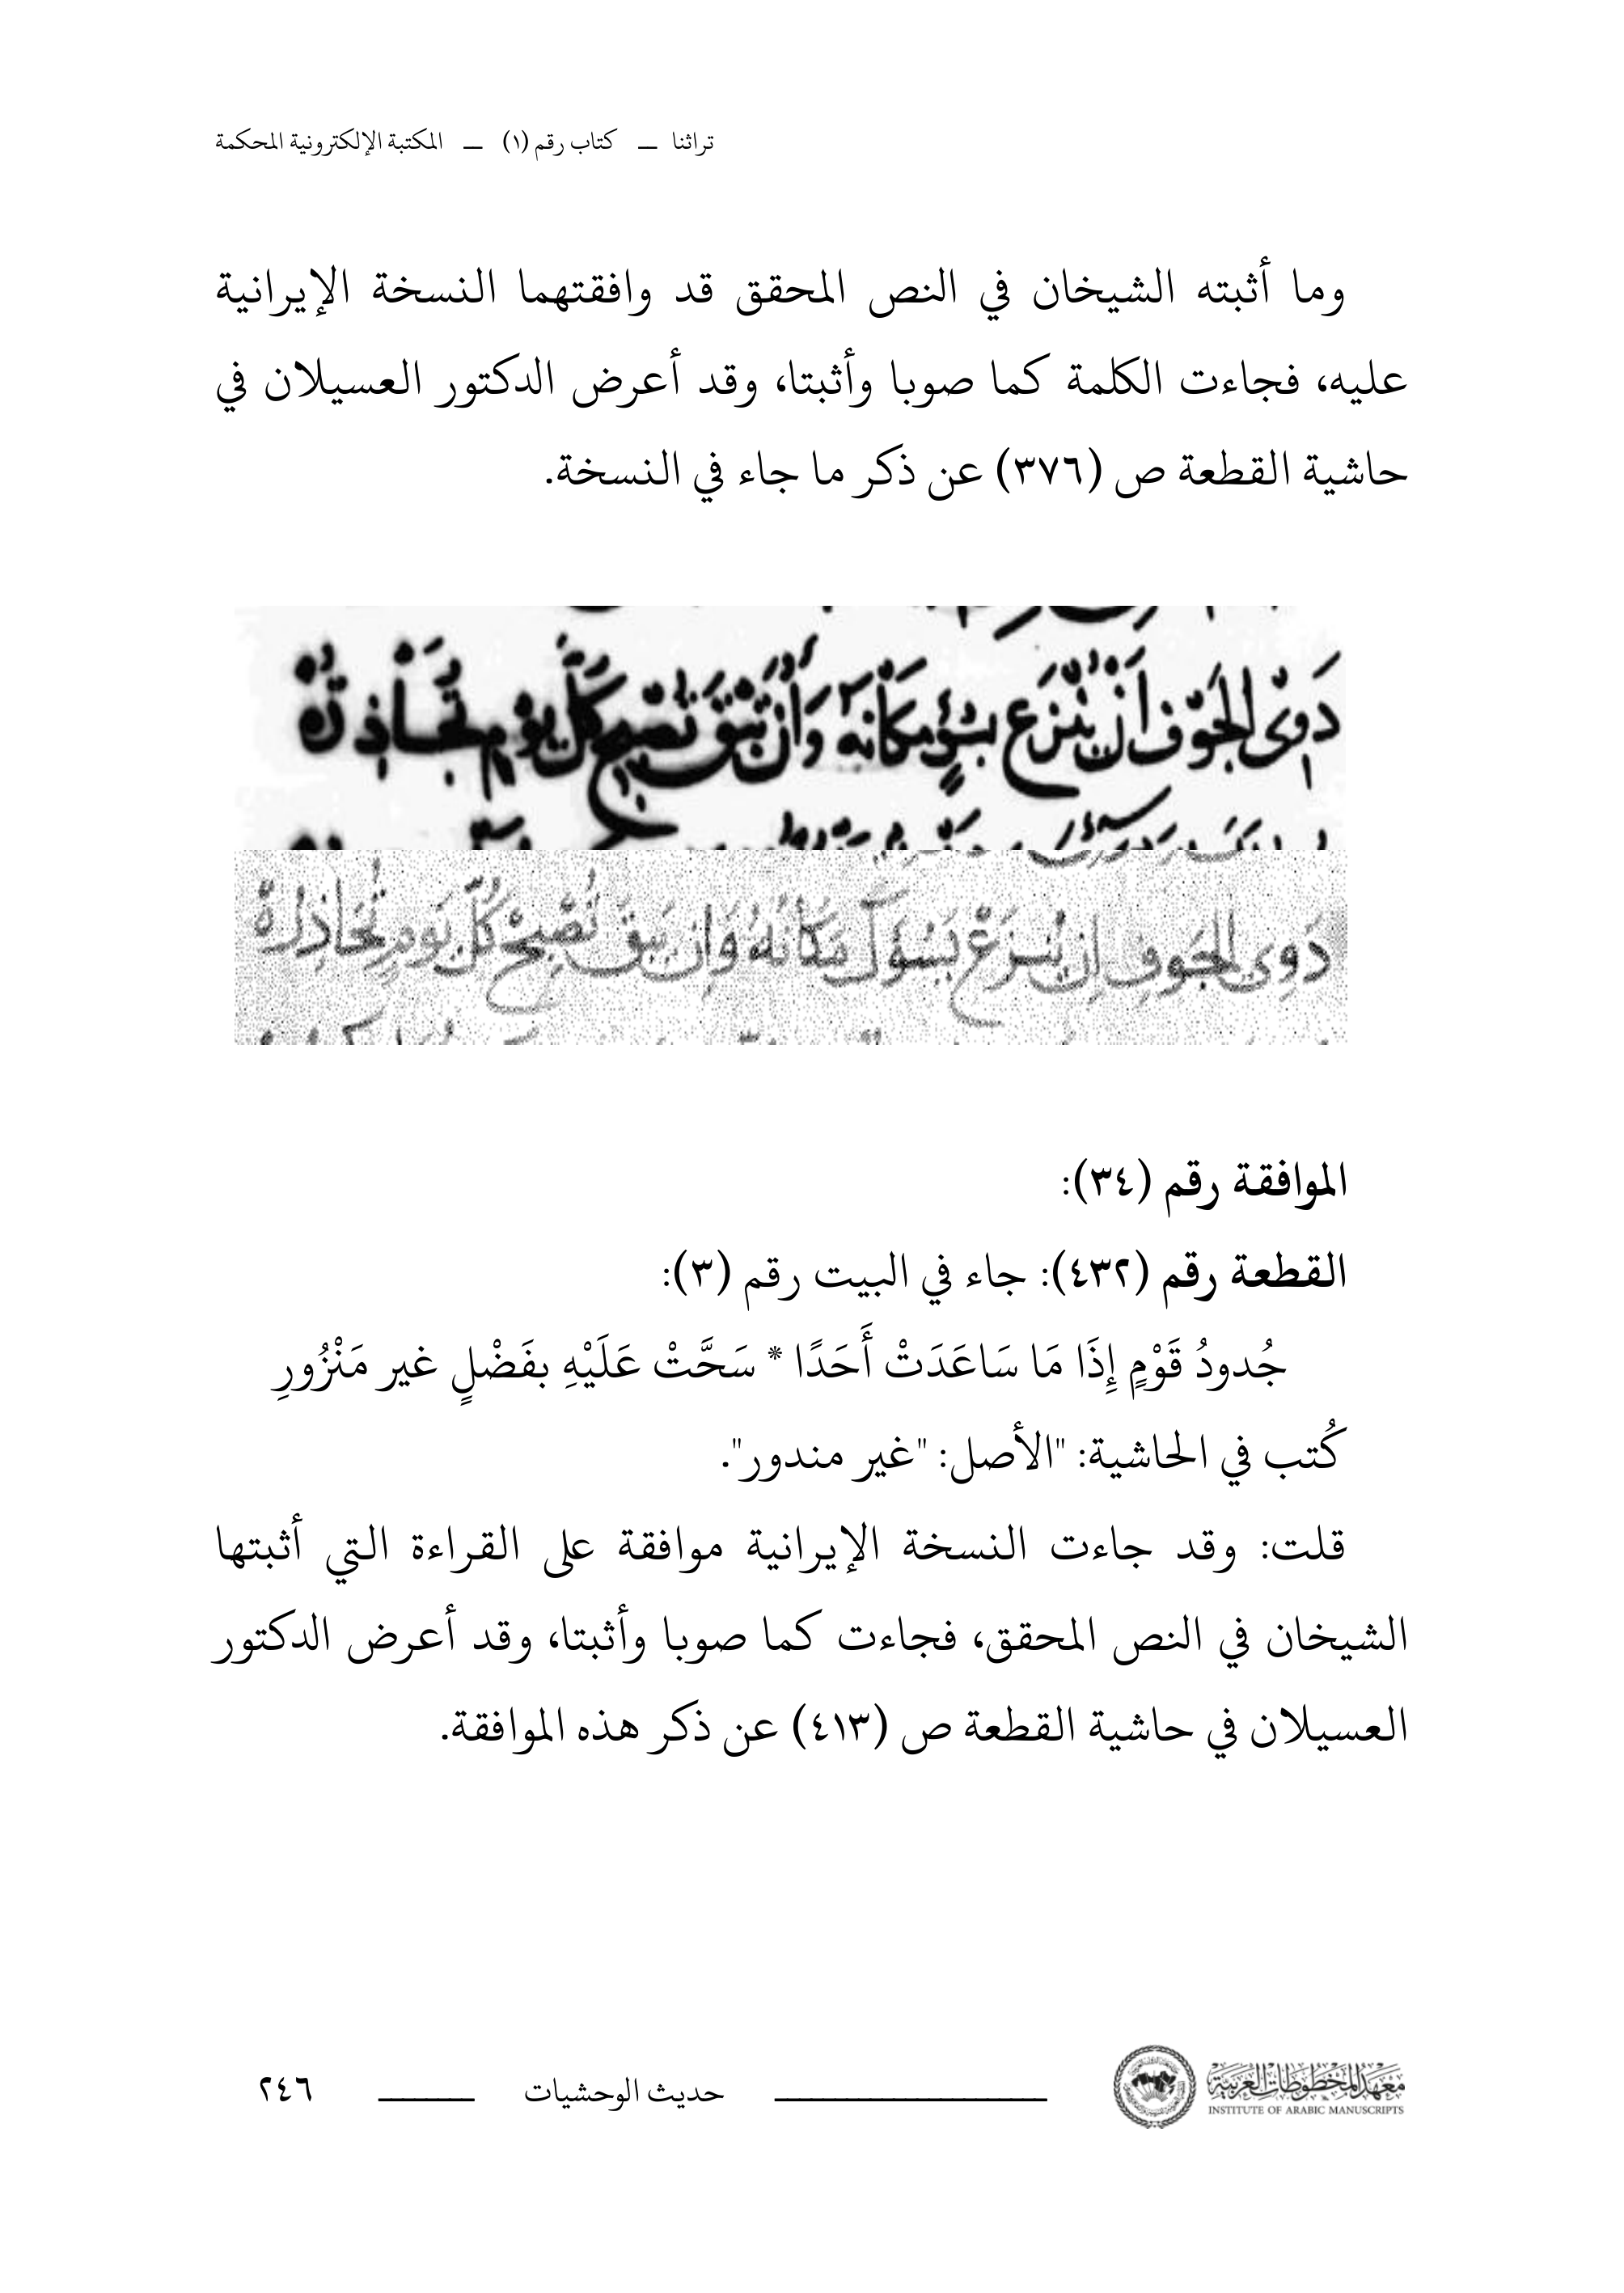 تراثنا — كتاب رقم (١) — المكتبة الإلكترونية المحكمة
وما أثبته الشيخان في النص المحقق قد وافقتهما النسخة الإيرانية
عليه، فجاءت الكلمة كما صوبا وأثبتا، وقد أعرض الدكتور العسيلان في
حاشية القطعة ص (٣٧٦) عن ذكر ما جاء في النسخة.
دَوِى الجَوفِ اِن يُنزَع يَسُؤكَ مَكَانُهُ وَاِن يَبقَ تُصْبِحْ كُلَّ يَومٍ تُحَاذِرُهْ
الموافقة رقم (٣٤):
القطعة رقم (٤٣٢): جاء في البيت رقم (٣):
جُدودُ قَوْمٍ إِذَا مَا سَاعَدَتْ أَحَدًا * سَحَّتْ عَلَيْهِ بفَضْلٍ غير مَنْزُورِ
كُتب في الحاشية: "الأصل: "غير مندور".
قلت: وقد جاءت النسخة الإيرانية موافقة على القراءة التي أثبتها
الشيخان في النص المحقق، فجاءت كما صوبا وأثبتا، وقد أعرض الدكتور
العسيلان في حاشية القطعة ص (٤١٣) عن ذكر هذه الموافقة.
معهد المخطوطات العربية
INSTITUTE OF ARABIC MANUSCRIPTS
حديث الوحشيات
٢٤٦